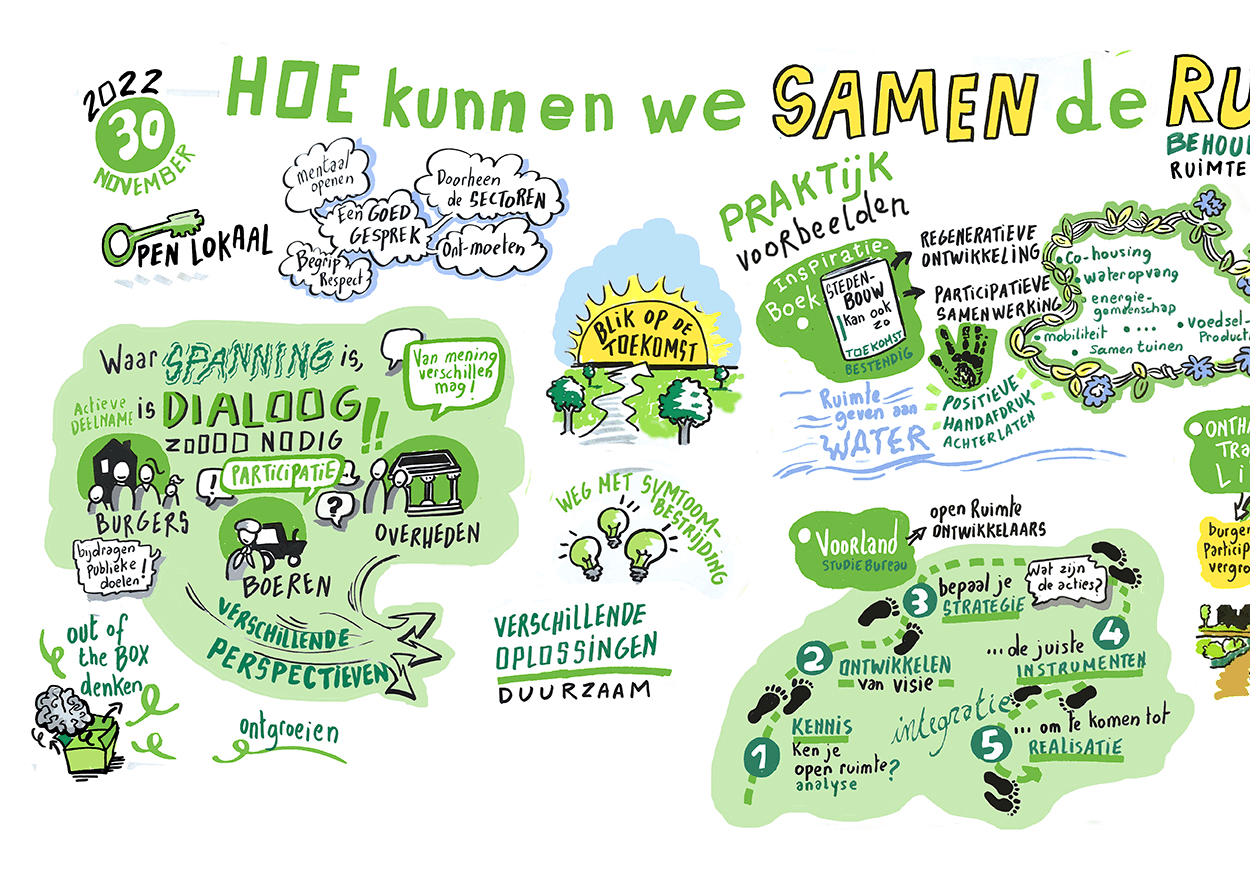 2022
30
NOVEMBER
HOE kunnen we SAMEN de RU
BEHOU
RUIMTE
OPEN LOKAAL
mentaal
openen
Doorheen
de SECTOREN
Een GOED
GESPREK
Ont-moeten
Begrip
Respect
Waar SPANNING is,
Actieve
DEELNAME
is DIALOOG!!
ZOOOO NODIG
Van mening
verschillen
mag!
!
PARTICIPATIE
?
BURGERS
OVERHEDEN
BOEREN
bijdragen
Publieke
doelen!
VERSCHILLENDE
PERSPECTIEVEN
out of
the BOX
denken
ontgroeien
BLIK OP DE
TOEKOMST
WEG MET SYMTOOM-
BESTRIJDING
VERSCHILLENDE
OPLOSSINGEN
DUURZAAM
PRAKTIJK
voorbeelden
Inspiratie-
Boek
STEDEN-
BOUW
Kan ook
zo
TOEKOMST
BESTENDIG
REGENERATIEVE
ONTWIKKELING
PARTICIPATIEVE
SAMENWERKING
POSITIEVE
HANDAFDRUK
ACHTERLATEN
Ruimte
geven aan
WATER
Co-housing
wateropvang
energie-
gemeenschap
mobiliteit
....
Samen tuinen
Voedsel-
Producti
Voorland
STUDIEBUREAU
open Ruimte
ONTWIKKELAARS
1
KENNIS
Ken je
open ruimte?
analyse
2
ONTWIKKELEN
van visie
3
bepaal je
STRATEGIE
Wat zijn
de acties?
4
...de juiste
INSTRUMENTEN
integratie
5
... om te komen tot
REALISATIE
ONTHA
TRA
Li
burge
Partici
vergro